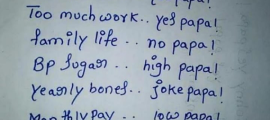 papa!
Too much work.. yes papa!
family life.. no papa!
Bp Sugar.. high papa!
Yearly bones.. joke papa!
Monthly Pay.. low papa!